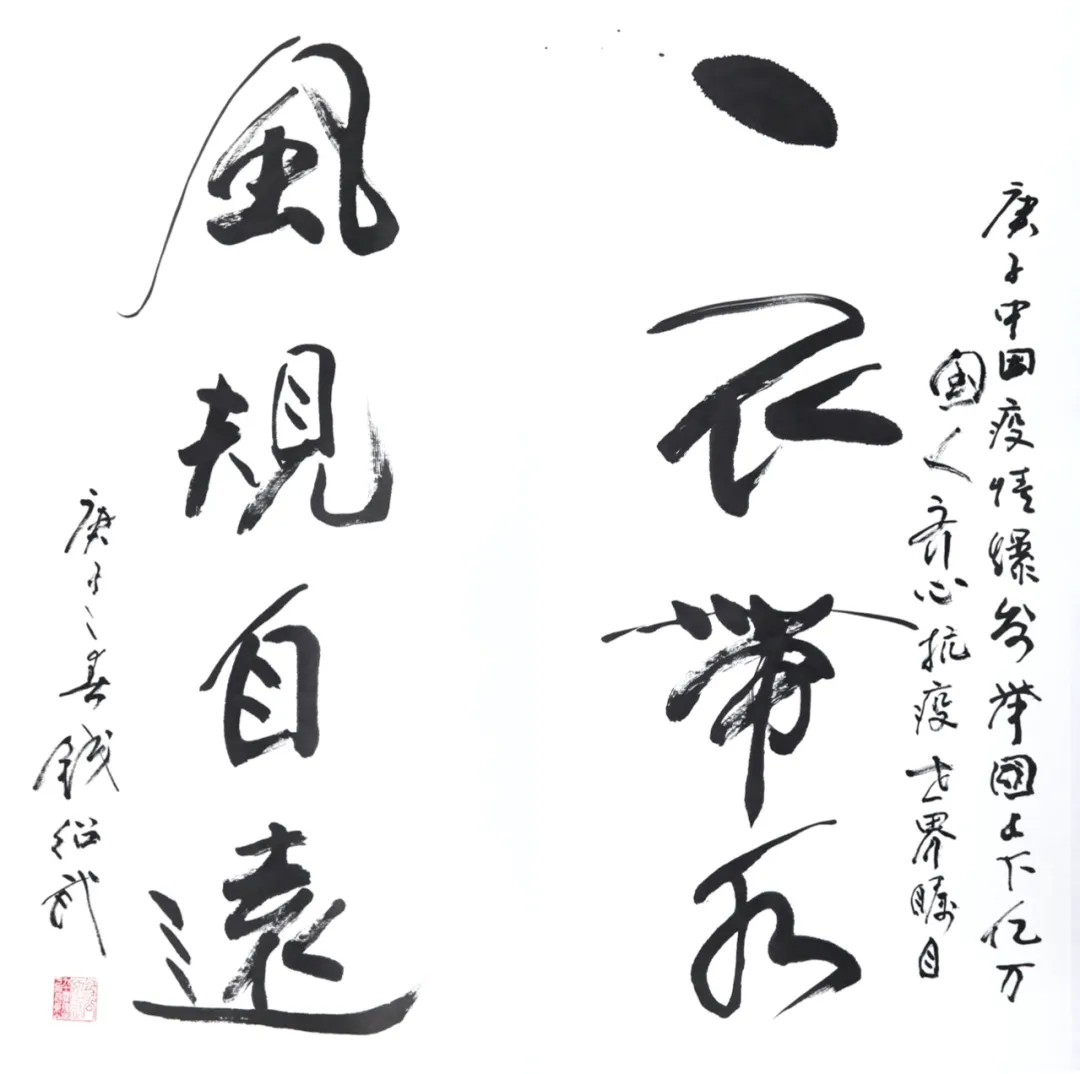 庚子中国疫情爆发举國上下亿万
国人齐心抗疫世界瞩目
一衣帶水
風規自遠
庚子之春錢紹武